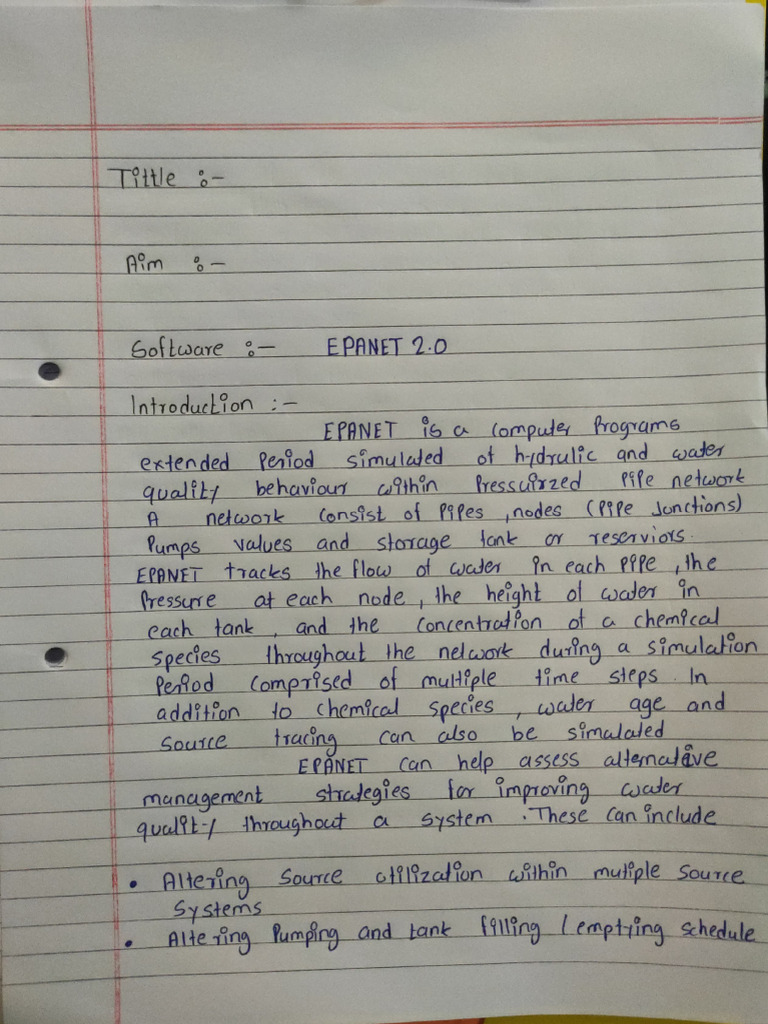 Tittle :-
Aim :-
Software :- EPANET 2.0
Introduction :-
EPANET is a Computer Programs
extended Period simulated of hydrulic and water
quality behaviour within Pressuirzed Pipe network
A network Consist of Pipes, nodes (Pipe Junctions)
Pumps values and storage tank or reserviors.
EPANET tracks the flow of water in each Pipe, the
Pressure at each node, the height of water in
each tank, and the Concentration of a chemical
species throughout the network during a simulation
Period Comprised of multiple time steps. In
addition to chemical species, water age and
source tracing can also be simulated
EPANET can help assess alternative
management strategies for improving water
quality throughout a system. These can include
• Altering Source utilization within mutiple Source
Systems
• Altering Pumping and tank filling / emptying schedule